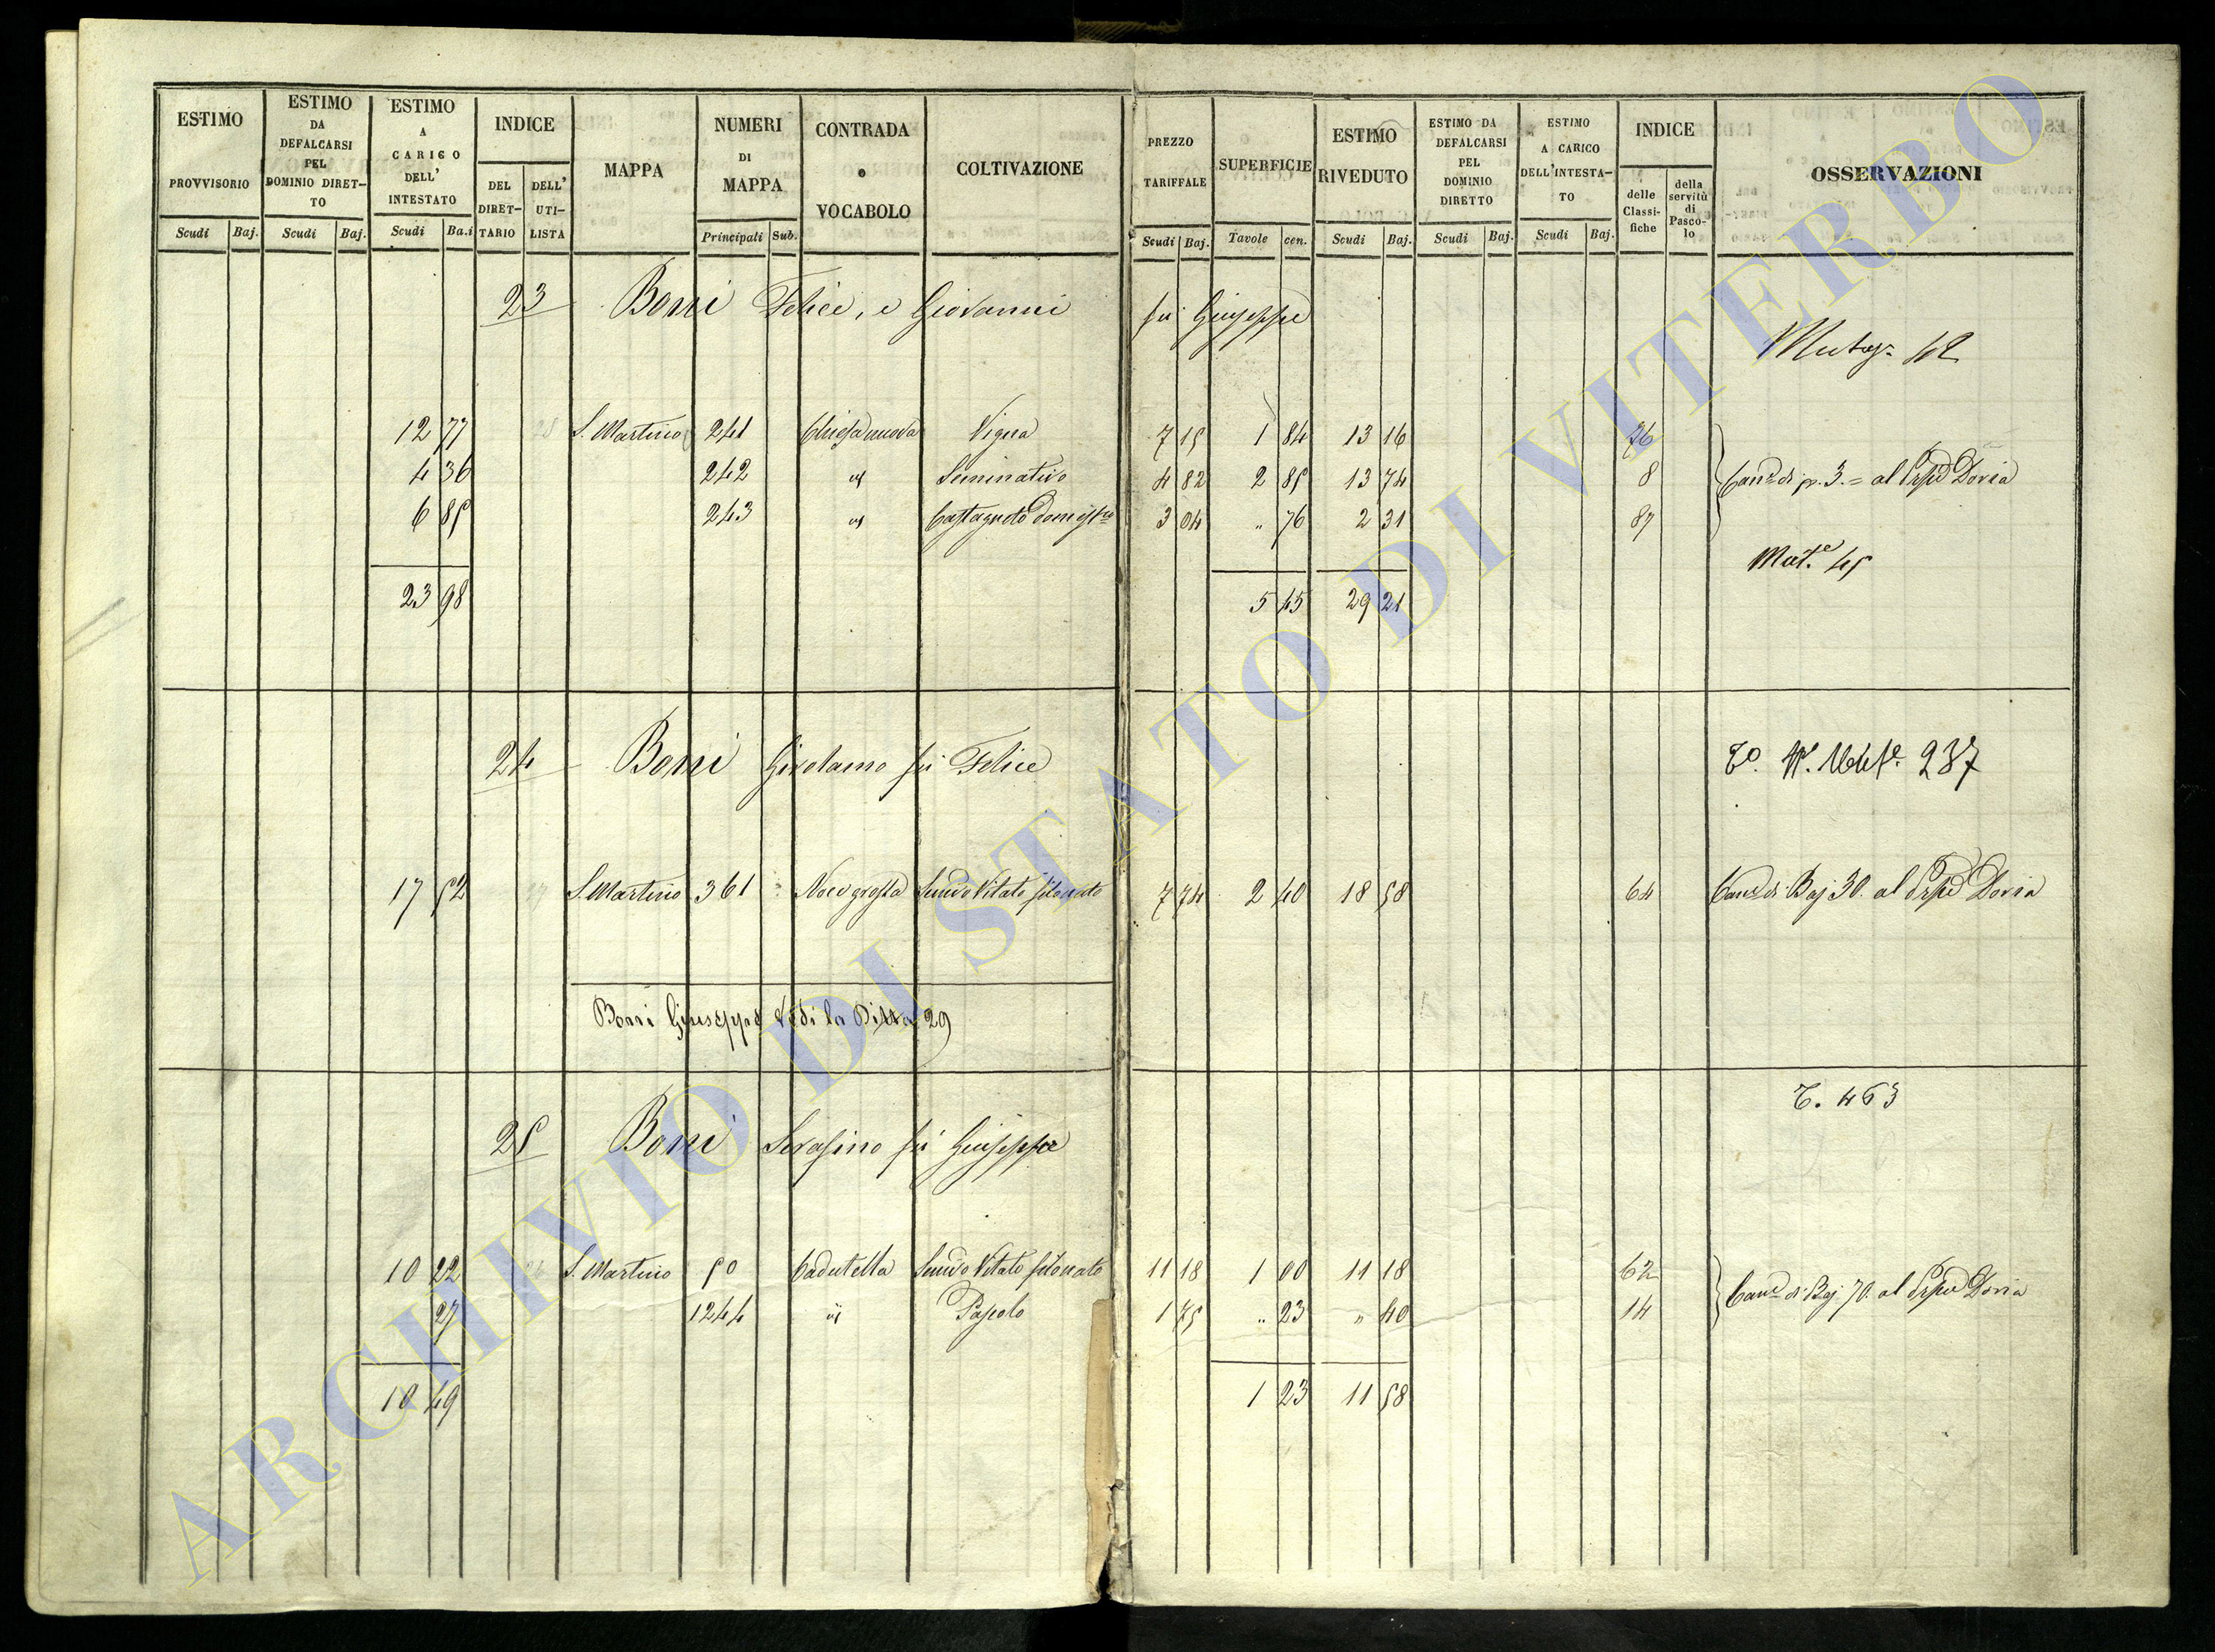 ESTIMO PROVVISORIO Scudi Baj.
ESTIMO DA DEFALCARSI PEL DOMINIO DIRET-TO Scudi Baj.
ESTIMO A CARICO DELL' INTESTATO Scudi Ba.i
INDICE DEL DIRET-TARIO DELL' UTI-LISTA
MAPPA
NUMERI DI MAPPA Principali Sub.
CONTRADA o VOCABOLO
COLTIVAZIONE
PREZZO TARIFFALE Scudi Baj.
SUPERFICIE Tavole cen.
ESTIMO RIVEDUTO Scudi Baj.
ESTIMO DA DEFALCARSI PEL DOMINIO DIRETTO Scudi Baj.
ESTIMO A CARICO DELL'INTESTA-TO Scudi Baj.
INDICE delle Classi-fiche della servitù di Pasco-lo
OSSERVAZIONI
23 Borri Felice, e Giovanni fu Giuseppe
12 77 S. Martino 241 Chiesa nuova Vigna 7 15 1 84 13 16 76
4 36 242 Seminativo 4 82 2 85 13 74 8 di 3.= al Doria
6 85 243 Castagneto 3 04 " 76 2 31 87
Mut.e 45
23 98 5 45 29 21
24 Borri Girolamo fu Felice 237
17 52 S. Martino 361 Noce grossa Vitato filonato 7 74 2 40 18 58 64 di Baj 30. al Doria
Borri Giuseppe Vedi la Ditta 29
T. 463
25 Borri Serafino fu Giuseppe
10 22 S. Martino 50 Cadutella Vitato filonato 11 18 1 00 11 18 62
27 1244 Pascolo 1 75 " 23 " 40 14 di Baj 70. al Doria
10 49 1 23 11 58
ARCHIVIO DI STATO DI VITERBO